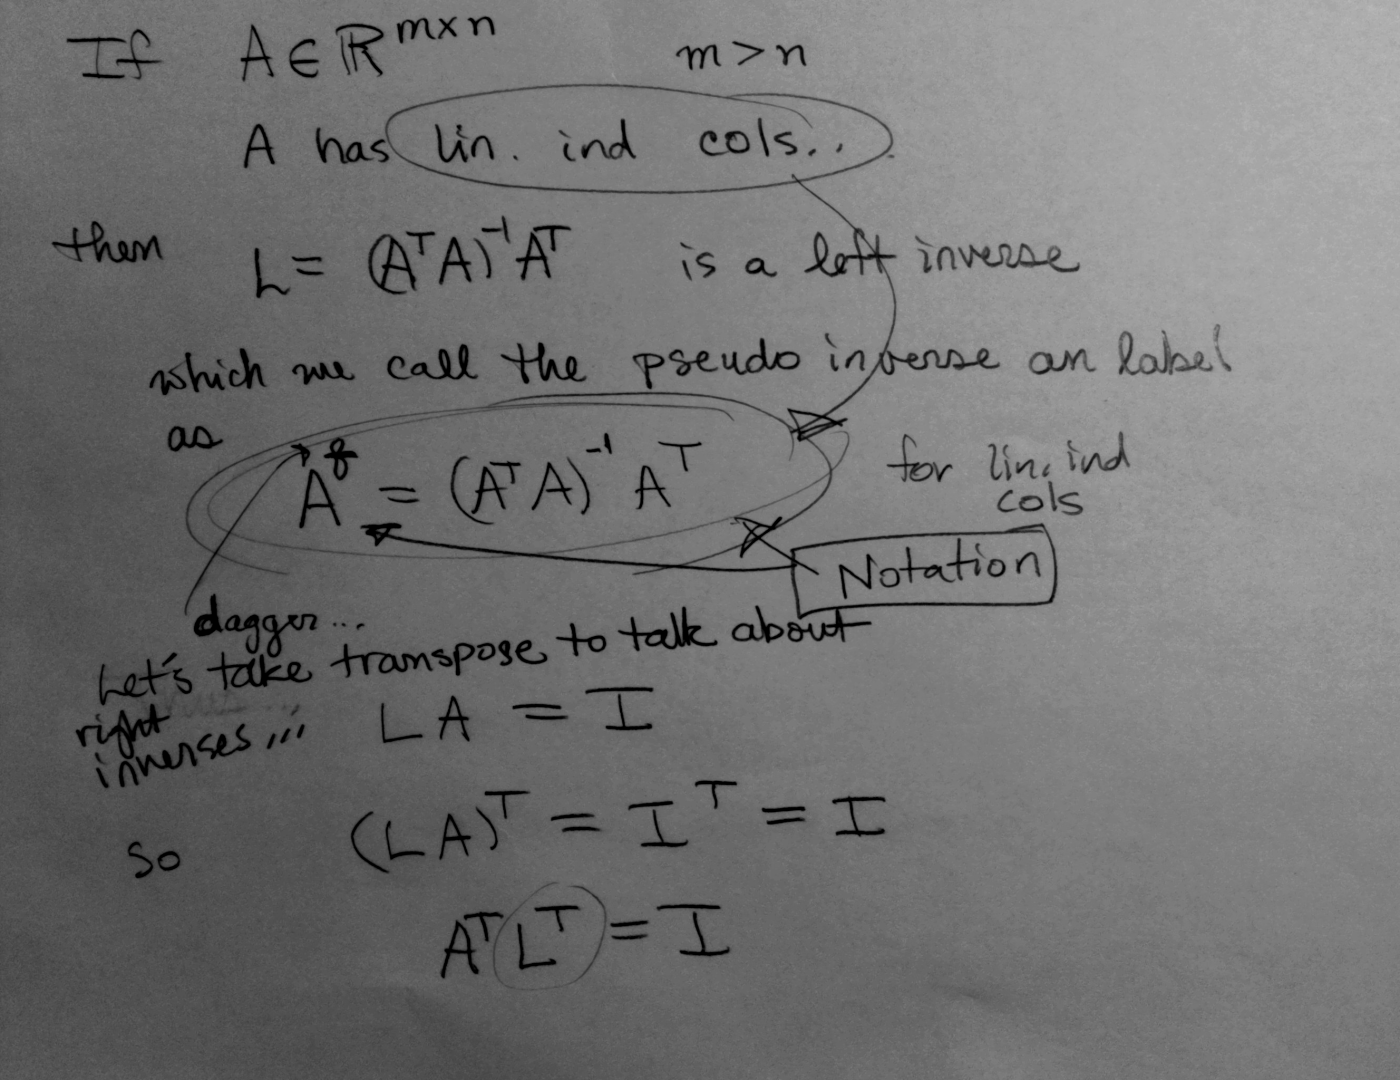 If A ∈ ℝ^{m×n} m > n
A has lin. ind cols..
then L = (AᵀA)⁻¹Aᵀ is a left inverse
which we call the pseudo inverse an label
as
A^† = (AᵀA)⁻¹ Aᵀ for lin. ind
cols
Notation
dagger...
Let's take transpose to talk about
right
inverses... LA = I
So (LA)ᵀ = Iᵀ = I
AᵀLᵀ = I